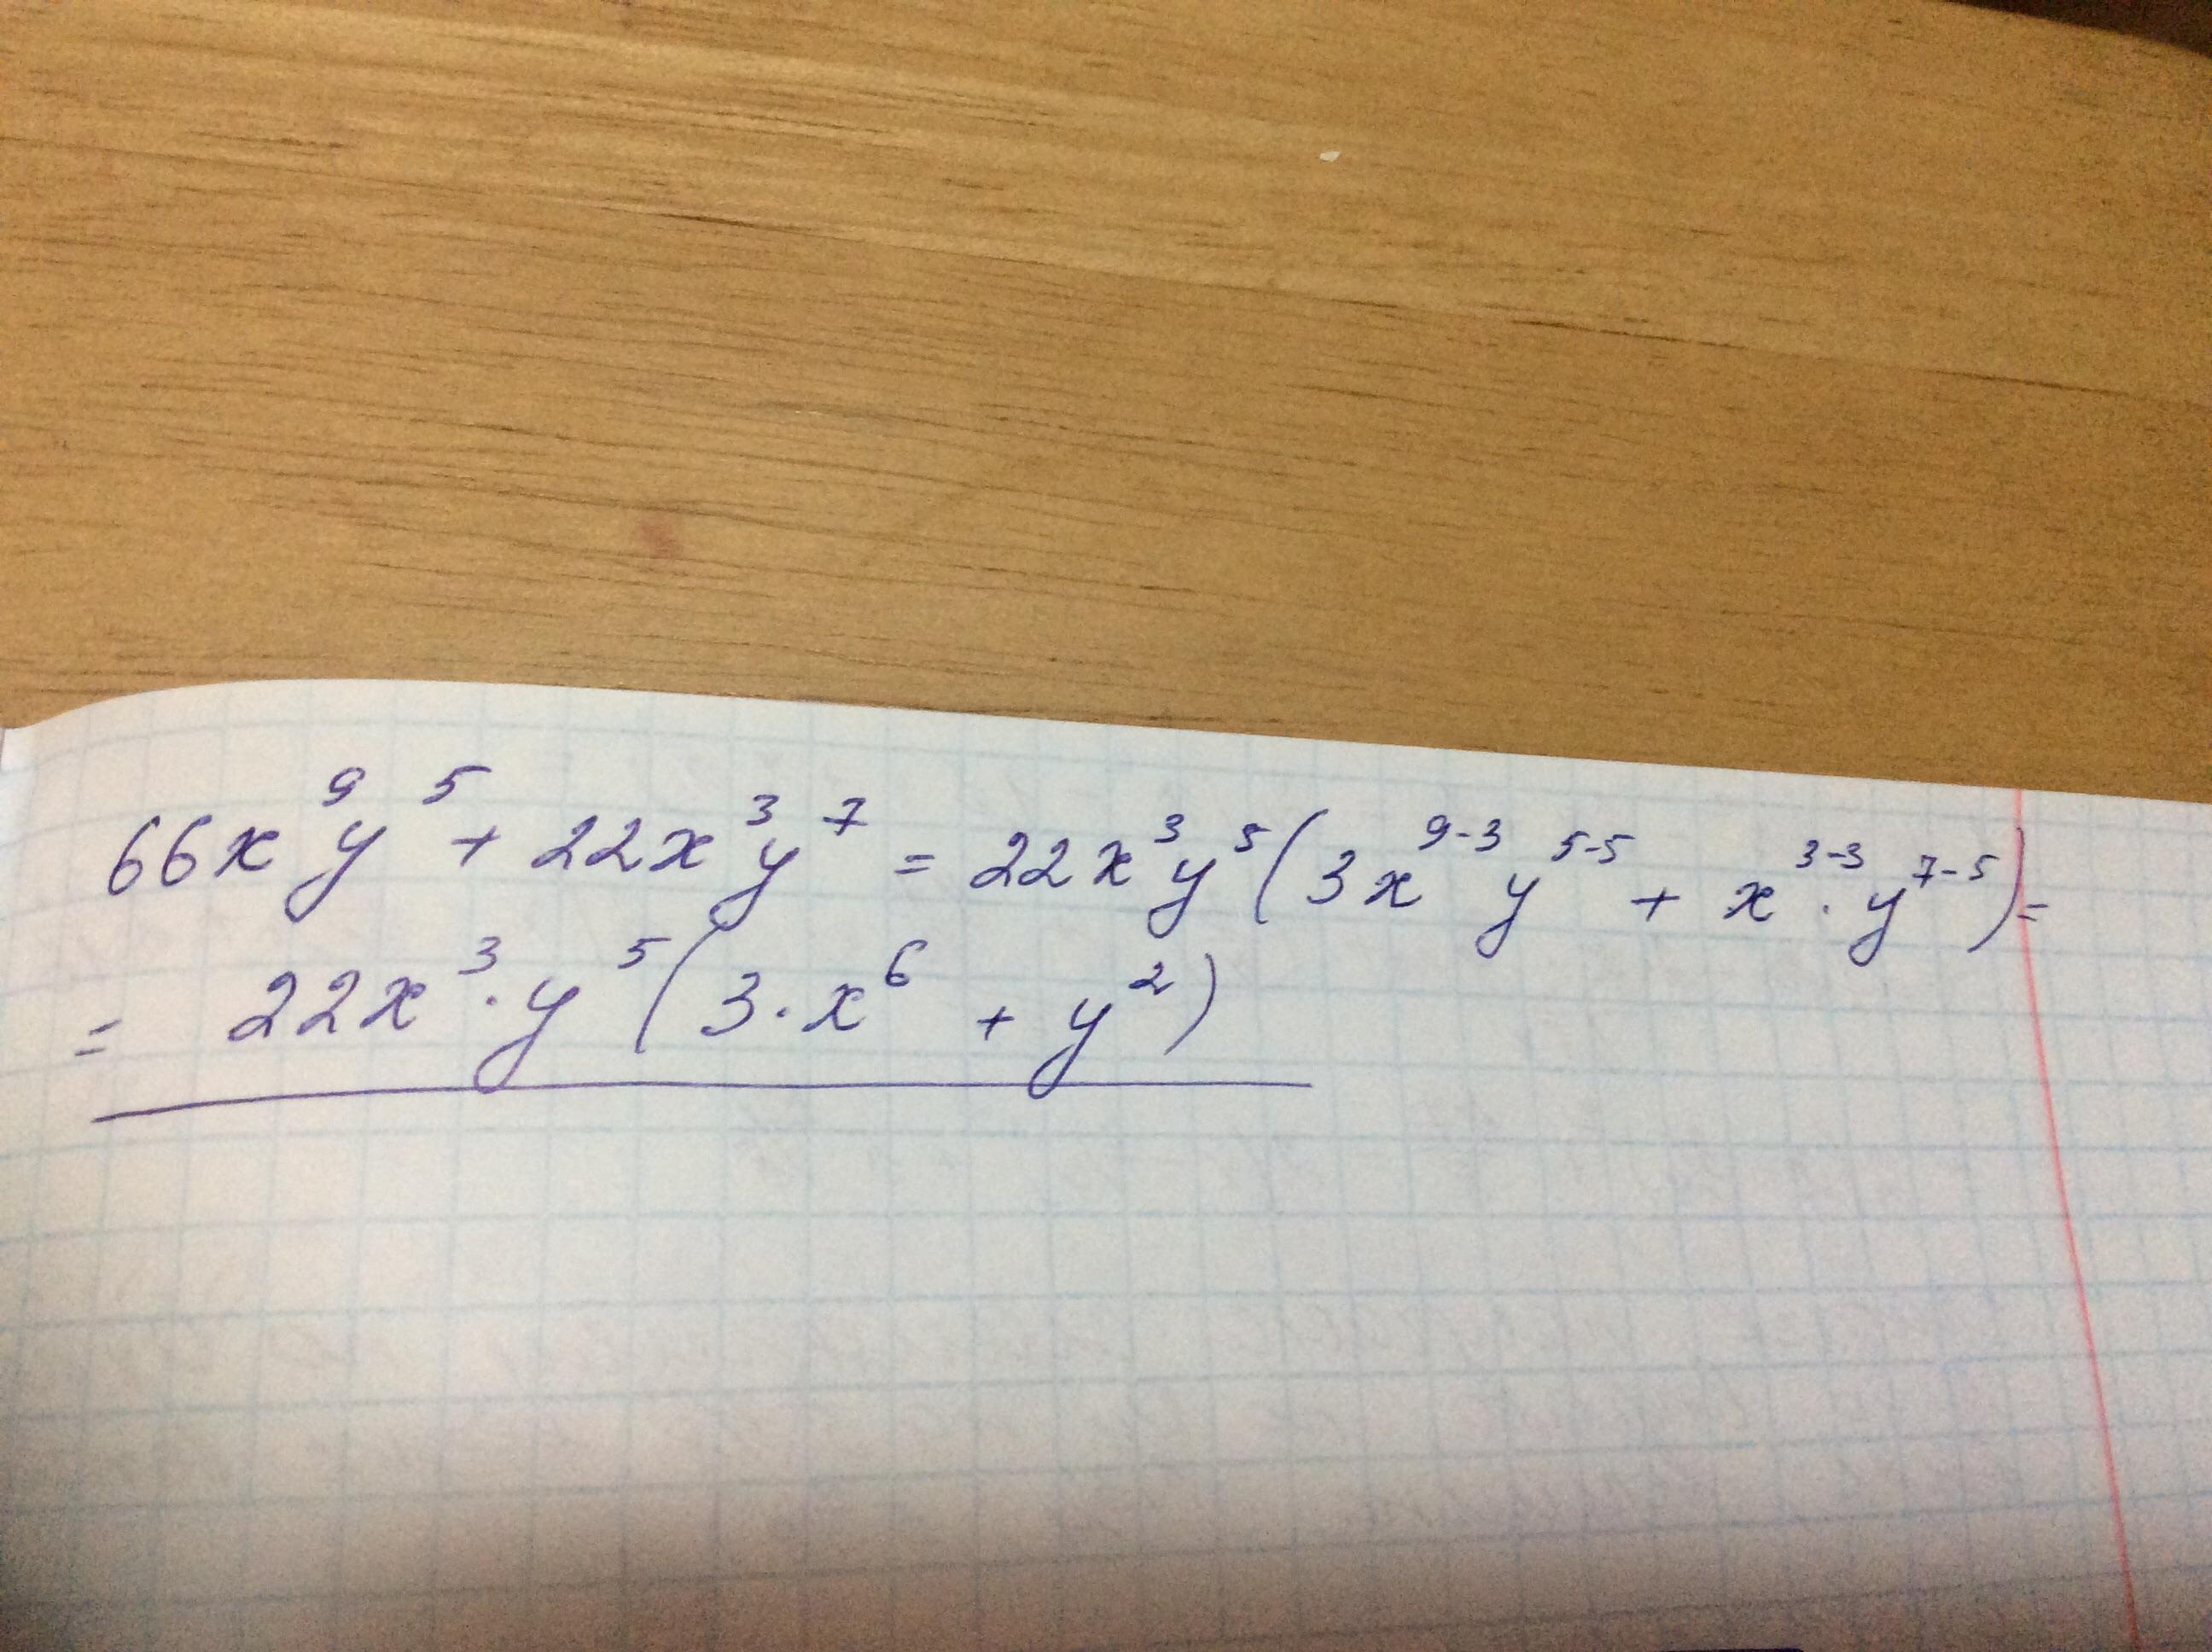 66x⁹y⁵ + 22x³y⁷ = 22x³y⁵(3x⁹⁻³y⁵⁻⁵ + x³⁻³·y⁷⁻⁵) =
= 22x³·y⁵(3·x⁶ + y²)